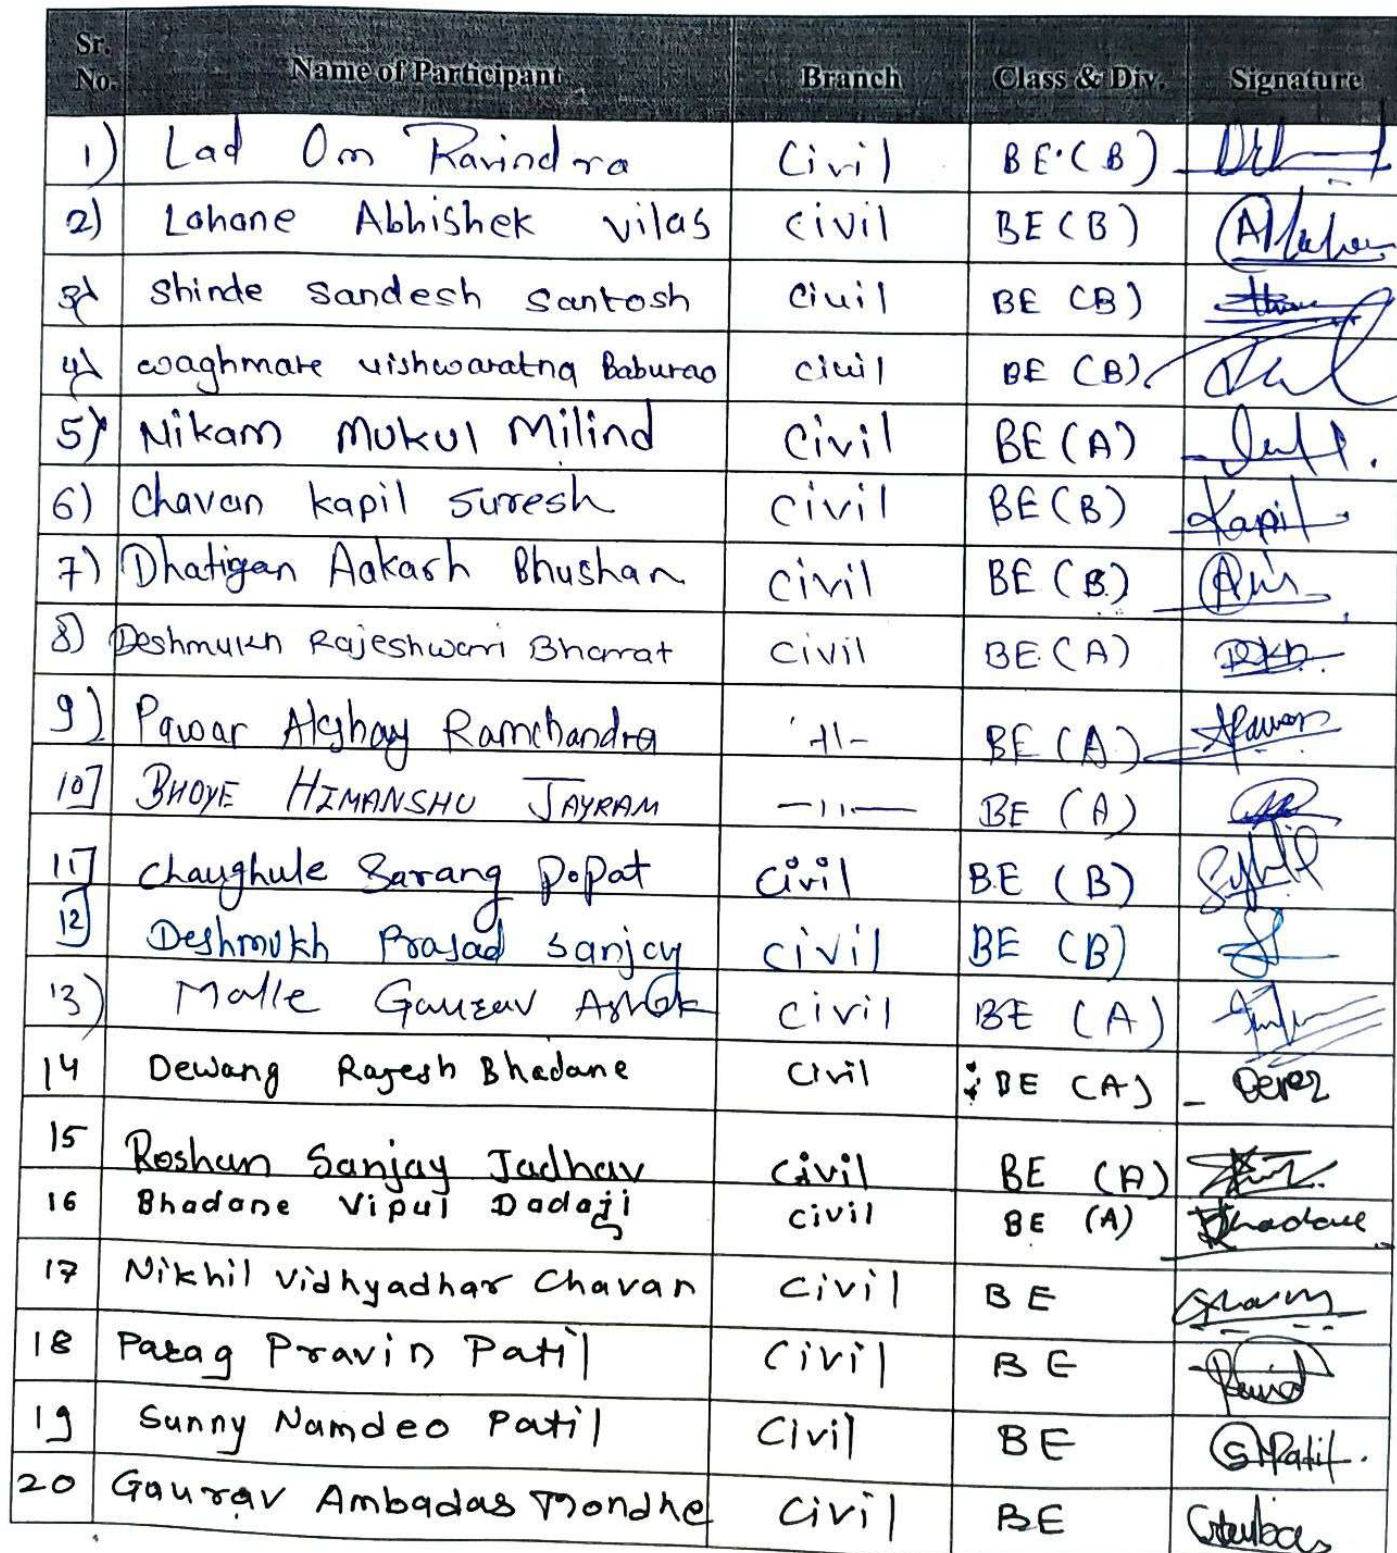 Sr. No. Name of Participant Branch Class & Div. Signature
1) Lad Om Ravindra Civil BE.(B)
2) Lohane Abhishek vilas civil BE(B)
3) Shinde Sandesh Santosh Civil BE (B)
4) waghmare vishwaratna Baburao civil BE (B)
5) Nikam Mukul Milind Civil BE(A)
6) Chavan kapil Suresh civil BE(B) Kapil
7) Dhatigan Aakash Bhushan civil BE (B)
8) Deshmukh Rajeshwari Bharat civil BE(A)
9) Pawar Akshay Ramchandra -11- BE (A) APawar
10] BHOYE HIMANSHU JAYRAM -11- BE (A)
11] Chaughule Sarang Popat civil BE (B)
12] Deshmukh Prasad Sanjay civil BE (B)
13) Malle Gaurav Ashok civil BE (A)
14 Dewang Rajesh Bhadane Civil BE (A)
15 Roshan Sanjay Jadhav Civil BE (A)
16 Bhadane Vipul Dadaji civil BE (A) Bhadane
17 Nikhil Vidhyadhar Chavan Civil BE
18 Parag Pravin Patil Civil BE
19 Sunny Namdeo Patil Civil BE SPatil.
20 Gaurav Ambadas Mondhe Civil BE